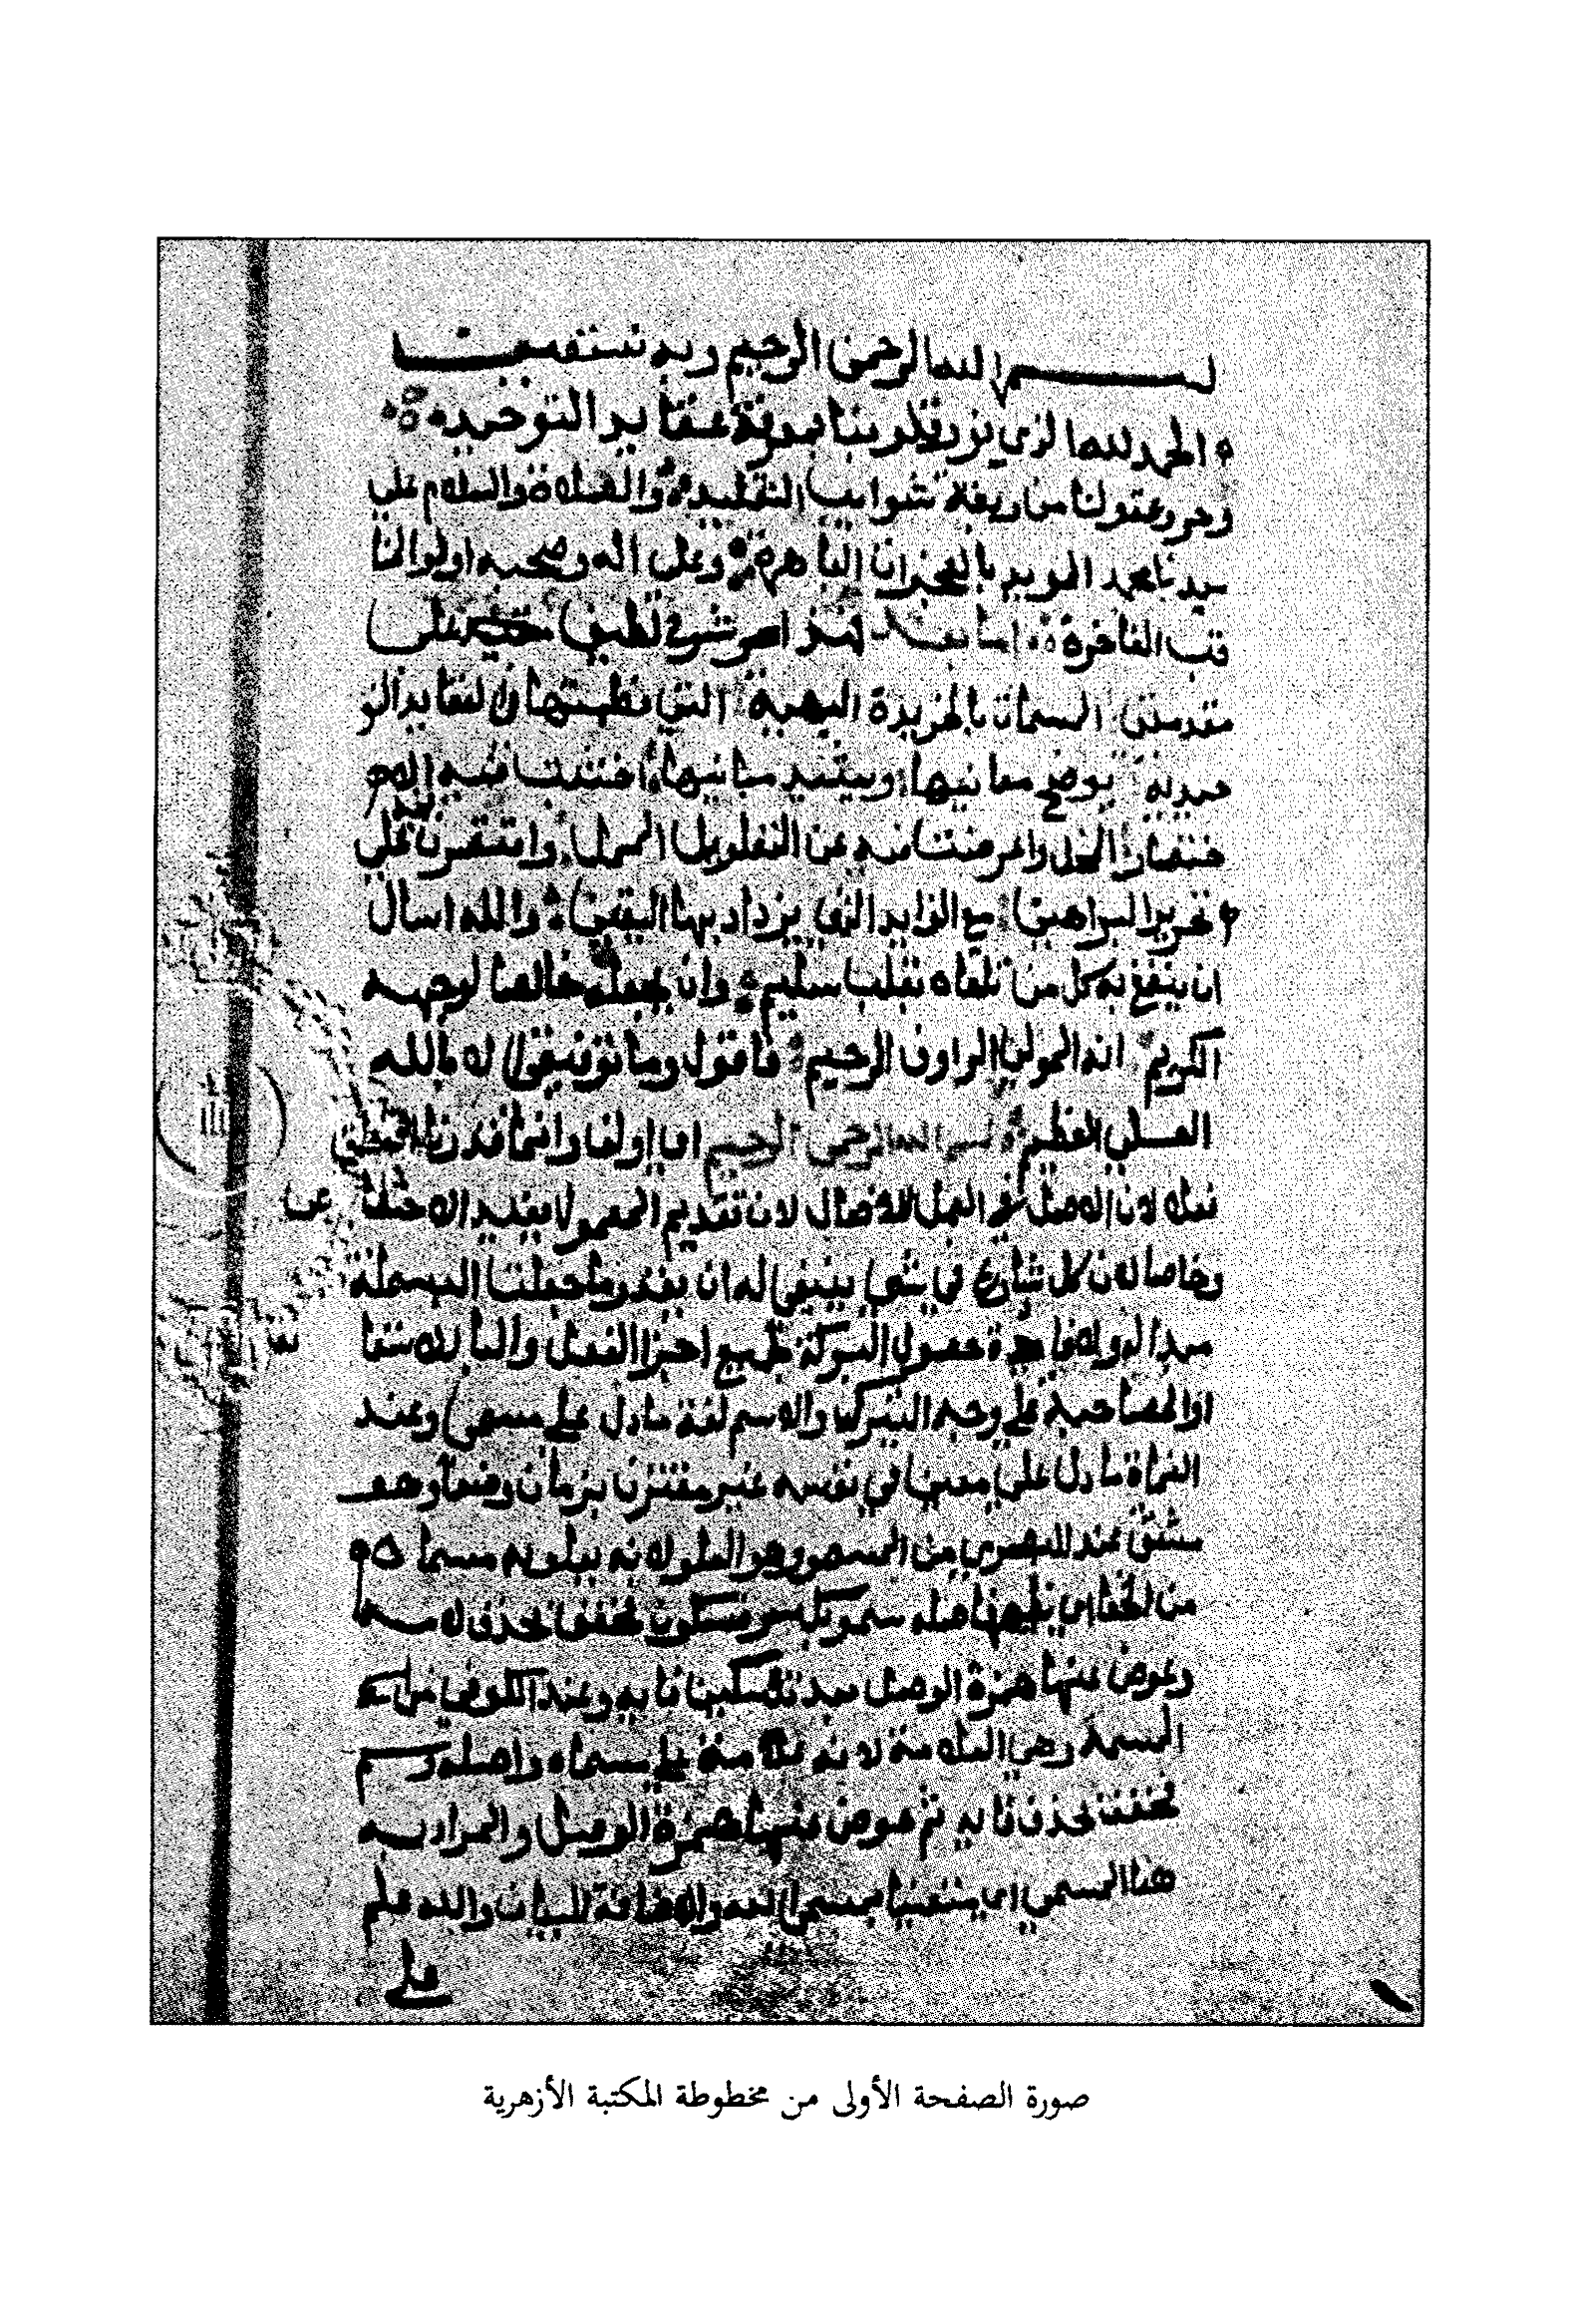 بسم الله الرحمن الرحيم وبه نستعين
الحمد لله الذي نور قلوبنا بمعرفة عقايد التوحيد
وحرر عقولنا من ربقة شوايب التقليد والصلاة والسلام علي
سيدنا محمد المويد بالمعجزات الباهرة وعلى اله وصحبه اولوا المنا
قب الفاخرة اما بعد فهذا شرح لطيف على
مقدمتي المسماة بالخريدة البهية التي نظمتها في العقايد التو
حيدية يوضح معانيها ويشيد مبانيها اجتنبت فيه الا
ختصار المخل واعرضت فيه عن التطويل الممل واقتصرت علي
تحرير البراهين مع الفوايد التي يزداد بها اليقين والله اسال
ان ينفع به كل من تلقاه بقلب سليم وان يجعله خالصا لوجهه
الكريم انه المولي الراوف الرحيم فاقول وما توفيقي الا بالله
العلي العظيم بسم الله الرحمن الرحيم اي اولف وانما قدرنا المتعلق
فعلا لان الاصل في العمل للافعال لان تقديم المعمول يفيد الاختصاص
وخاصا لان كل شارع في شي ينبغي له ان يقدر ما جعلت البسملة
مبدا له ولافادة حصول البركة لجميع اجزا الفعل والبا للاستعا
او المصاحبة علي وجه التبرك والاسم لغة ما دل على مسمى وعند
النحاة ما دل علي معني في نفسه غير مقترن بزمان وضعا وهو
مشتق عند البصري من السمو وهو العلو لانه يعلو به مسماه
من الخفا فاصله سمو بكسر فسكون فخفف بحذف لامه
وعوض عنها همزة الوصل بعد تسكين فايه وعند الكوفي من
السمة وهي العلامة لانه علامة علي مسماه واصله وسم
فخففت بحذف فايه ثم عوض عنها همزة الوصل والمراد به
هنا المسمي اي مستعينا بمسمى الله والاضافة للبيان والله علم
علي
صورة الصفحة الأولى من مخطوطة المكتبة الأزهرية